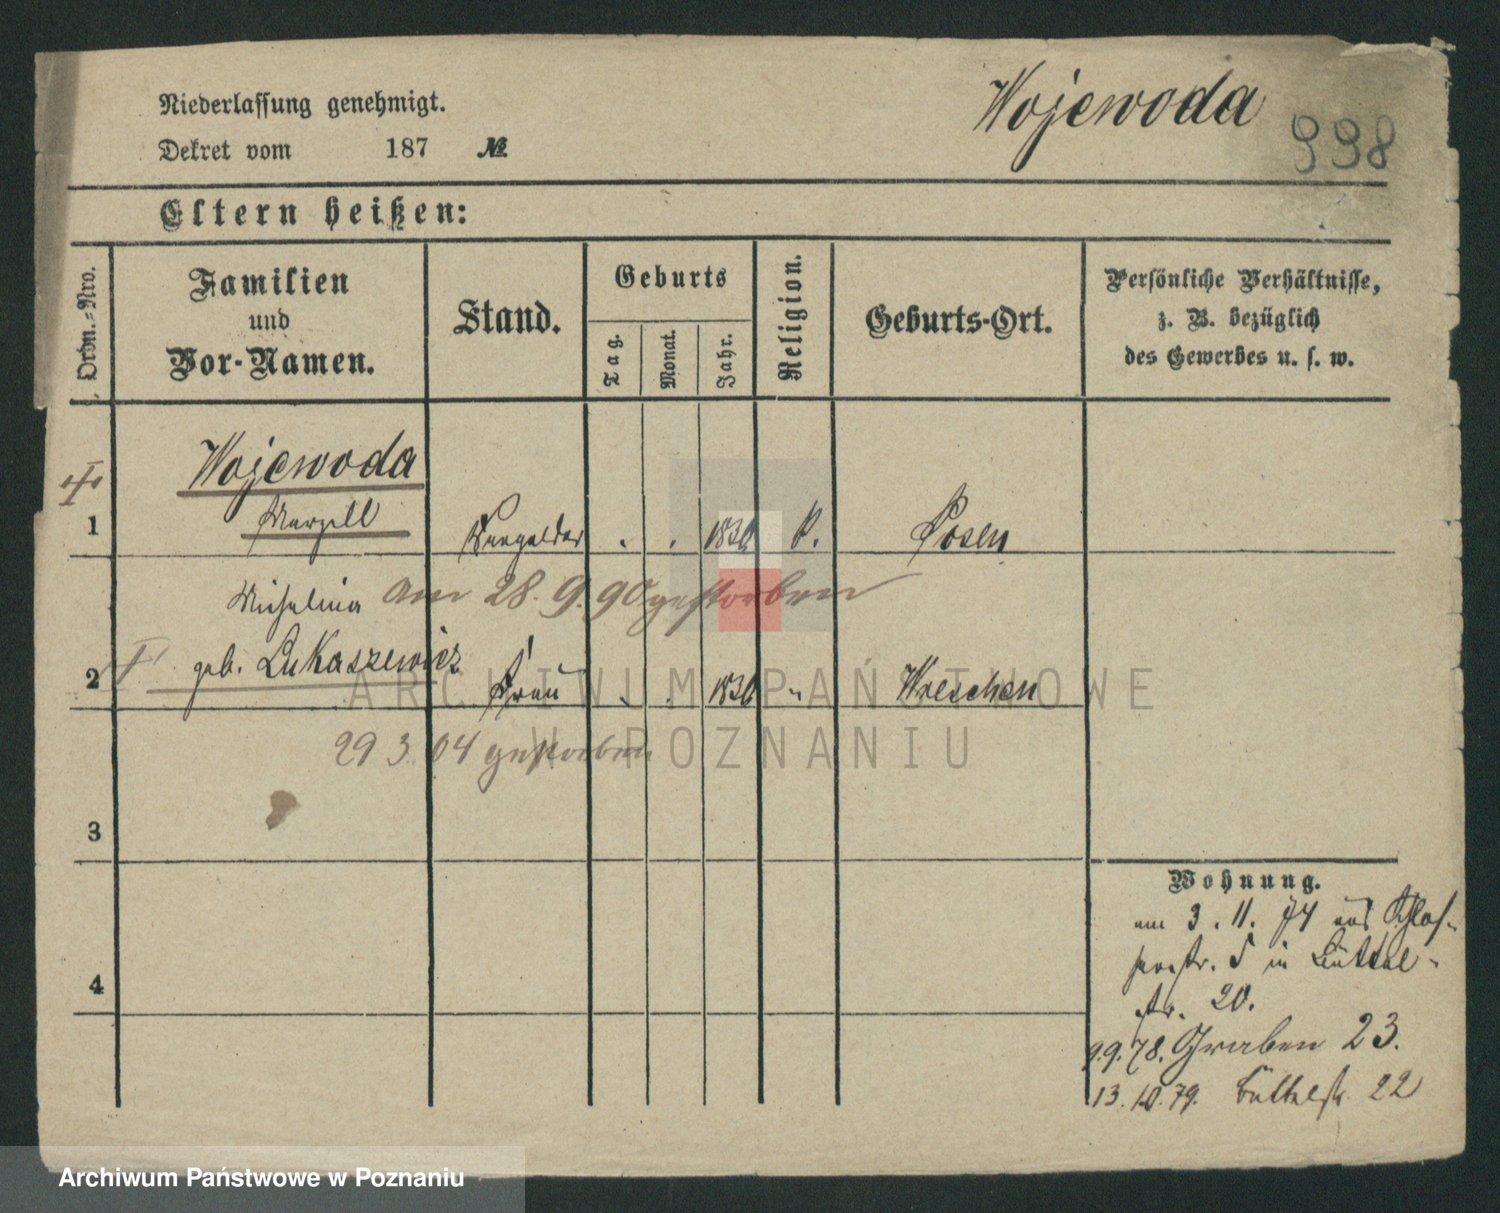 Niederlassung genehmigt.
Wojewoda
998
Dekret vom 187 №
Eltern heißen:
Ordn.-Nro.
Familien
und
Vor-Namen.
Stand.
Geburts
Tag.
Monat.
Jahr.
Religion.
Geburts-Ort.
Persönliche Verhältnisse,
z. B. bezüglich
des Gewerbes u. s. w.
Wojewoda
1 Marzell 1836 P. Posen
am 28. 9. 90 gestorben
Michalina
2 geb. Lukaszewicz Frau 1836 " Wreschen
29 3. 04 gestorben
3
4
Wohnung.
am 3. 11. 74 aus
5 in Büttel-
str. 20.
9.9.78. Graben 23.
13. 10. 79. Büttelstr. 22
ARCHIWUM PAŃSTWOWE
W POZNANIU
Archiwum Państwowe w Poznaniu